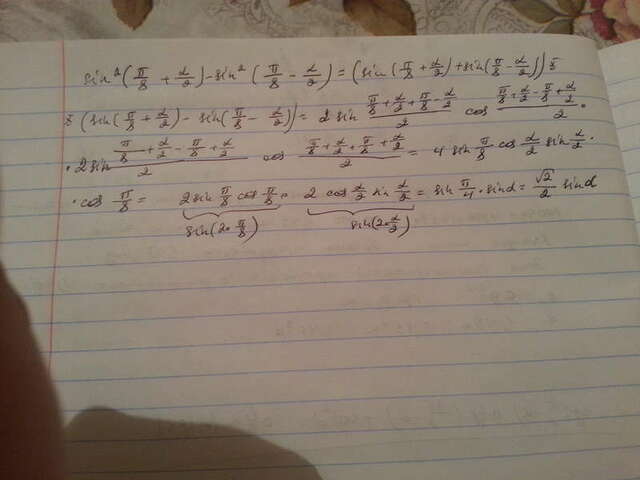 sin²(π/8 + α/2) - sin²(π/8 - α/2) = (sin(π/8 + α/2) + sin(π/8 - α/2)) ×
× (sin(π/8 + α/2) - sin(π/8 - α/2)) = 2 sin (π/8 + α/2 + π/8 - α/2)/2 cos (π/8 + α/2 - π/8 + α/2)/2 ·
· 2 sin (π/8 + α/2 - π/8 + α/2)/2 cos (π/8 + α/2 + π/8 - α/2)/2 = 4 sin π/8 cos α/2 sin α/2 ·
· cos π/8 = 2 sin π/8 cos π/8 · 2 cos α/2 sin α/2 = sin π/4 · sin α = √2/2 sin α
sin(2·π/8) sin(2·α/2)